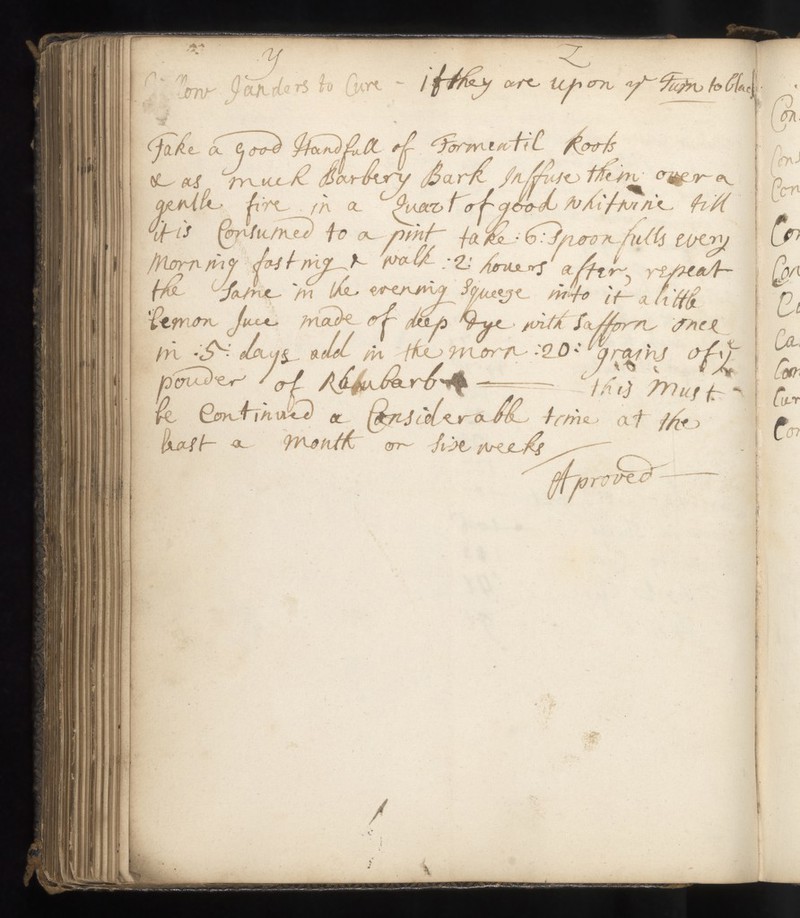 y Z
Yellow Janders to Cure - if they are upon yr Turn to black
Take a good Handfull of Tormentil Roots
& as much Barbery Bark Inffuse them over a
gentle fire in a Quart of good whitwine till
it is Consumed to a pint take :6: spoonfulls every
Morning fasting & walk :2: houers after, repeat
the Same in the evening Squeege into it a little
Lemon Juce made of deep Dye with Safforn once
in :5: days add in the morn :20: grains of ye
pouder of Rhubarb — this Must
be Continued a Considerable time at the
least a Month or sixe weeks
Aproved —
Con
Con
Con
Cor
Con
Ca
Com
Cur
Cor